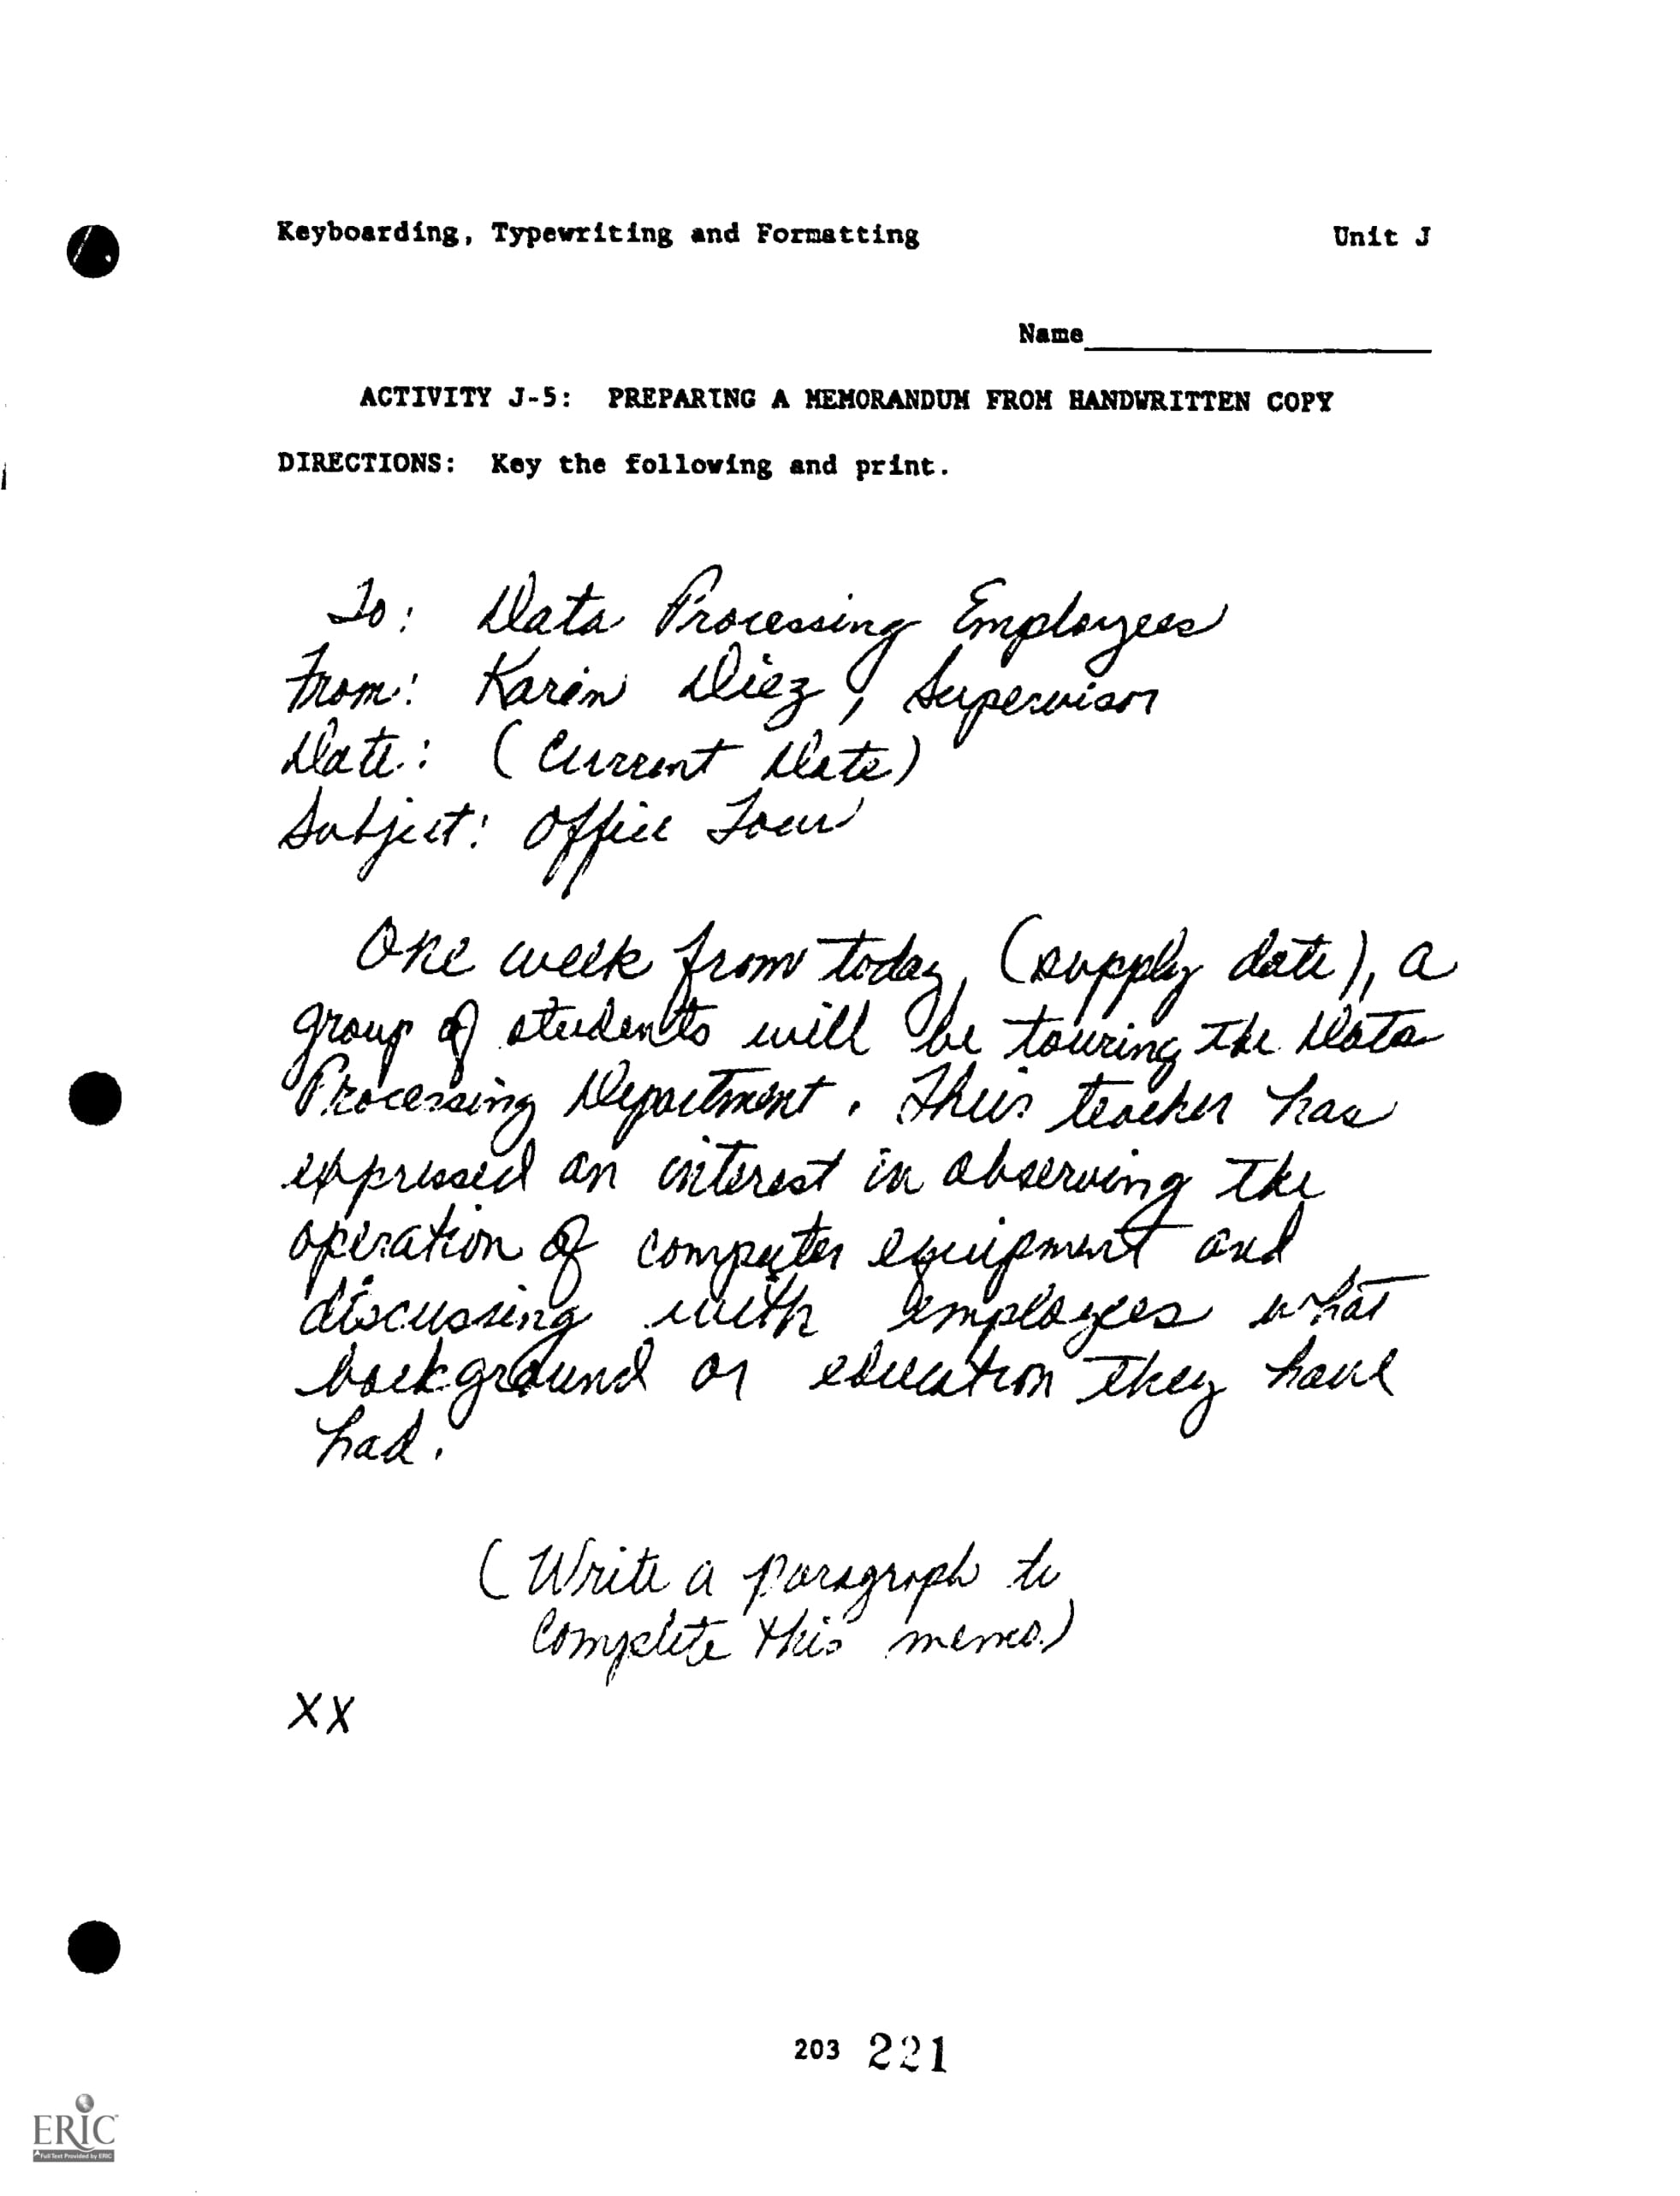 Keyboarding, Typewriting and Formatting Unit J
Name
ACTIVITY J-5: PREPARING A MEMORANDUM FROM HANDWRITTEN COPY
DIRECTIONS: Key the following and print.
To: Data Processing Employees
From: Karen Diez, Supervisor
Date: (Current Date)
Subject: Office Tour
One week from today, (supply date), a
group of students will be touring the Data
Processing Department. Their teacher has
expressed an interest in observing the
operation of computer equipment and
discussing with employees what
background or education they have
had.
(Write a paragraph to
complete this memo.)
XX
203 221
ERIC
Full Text Provided by ERIC